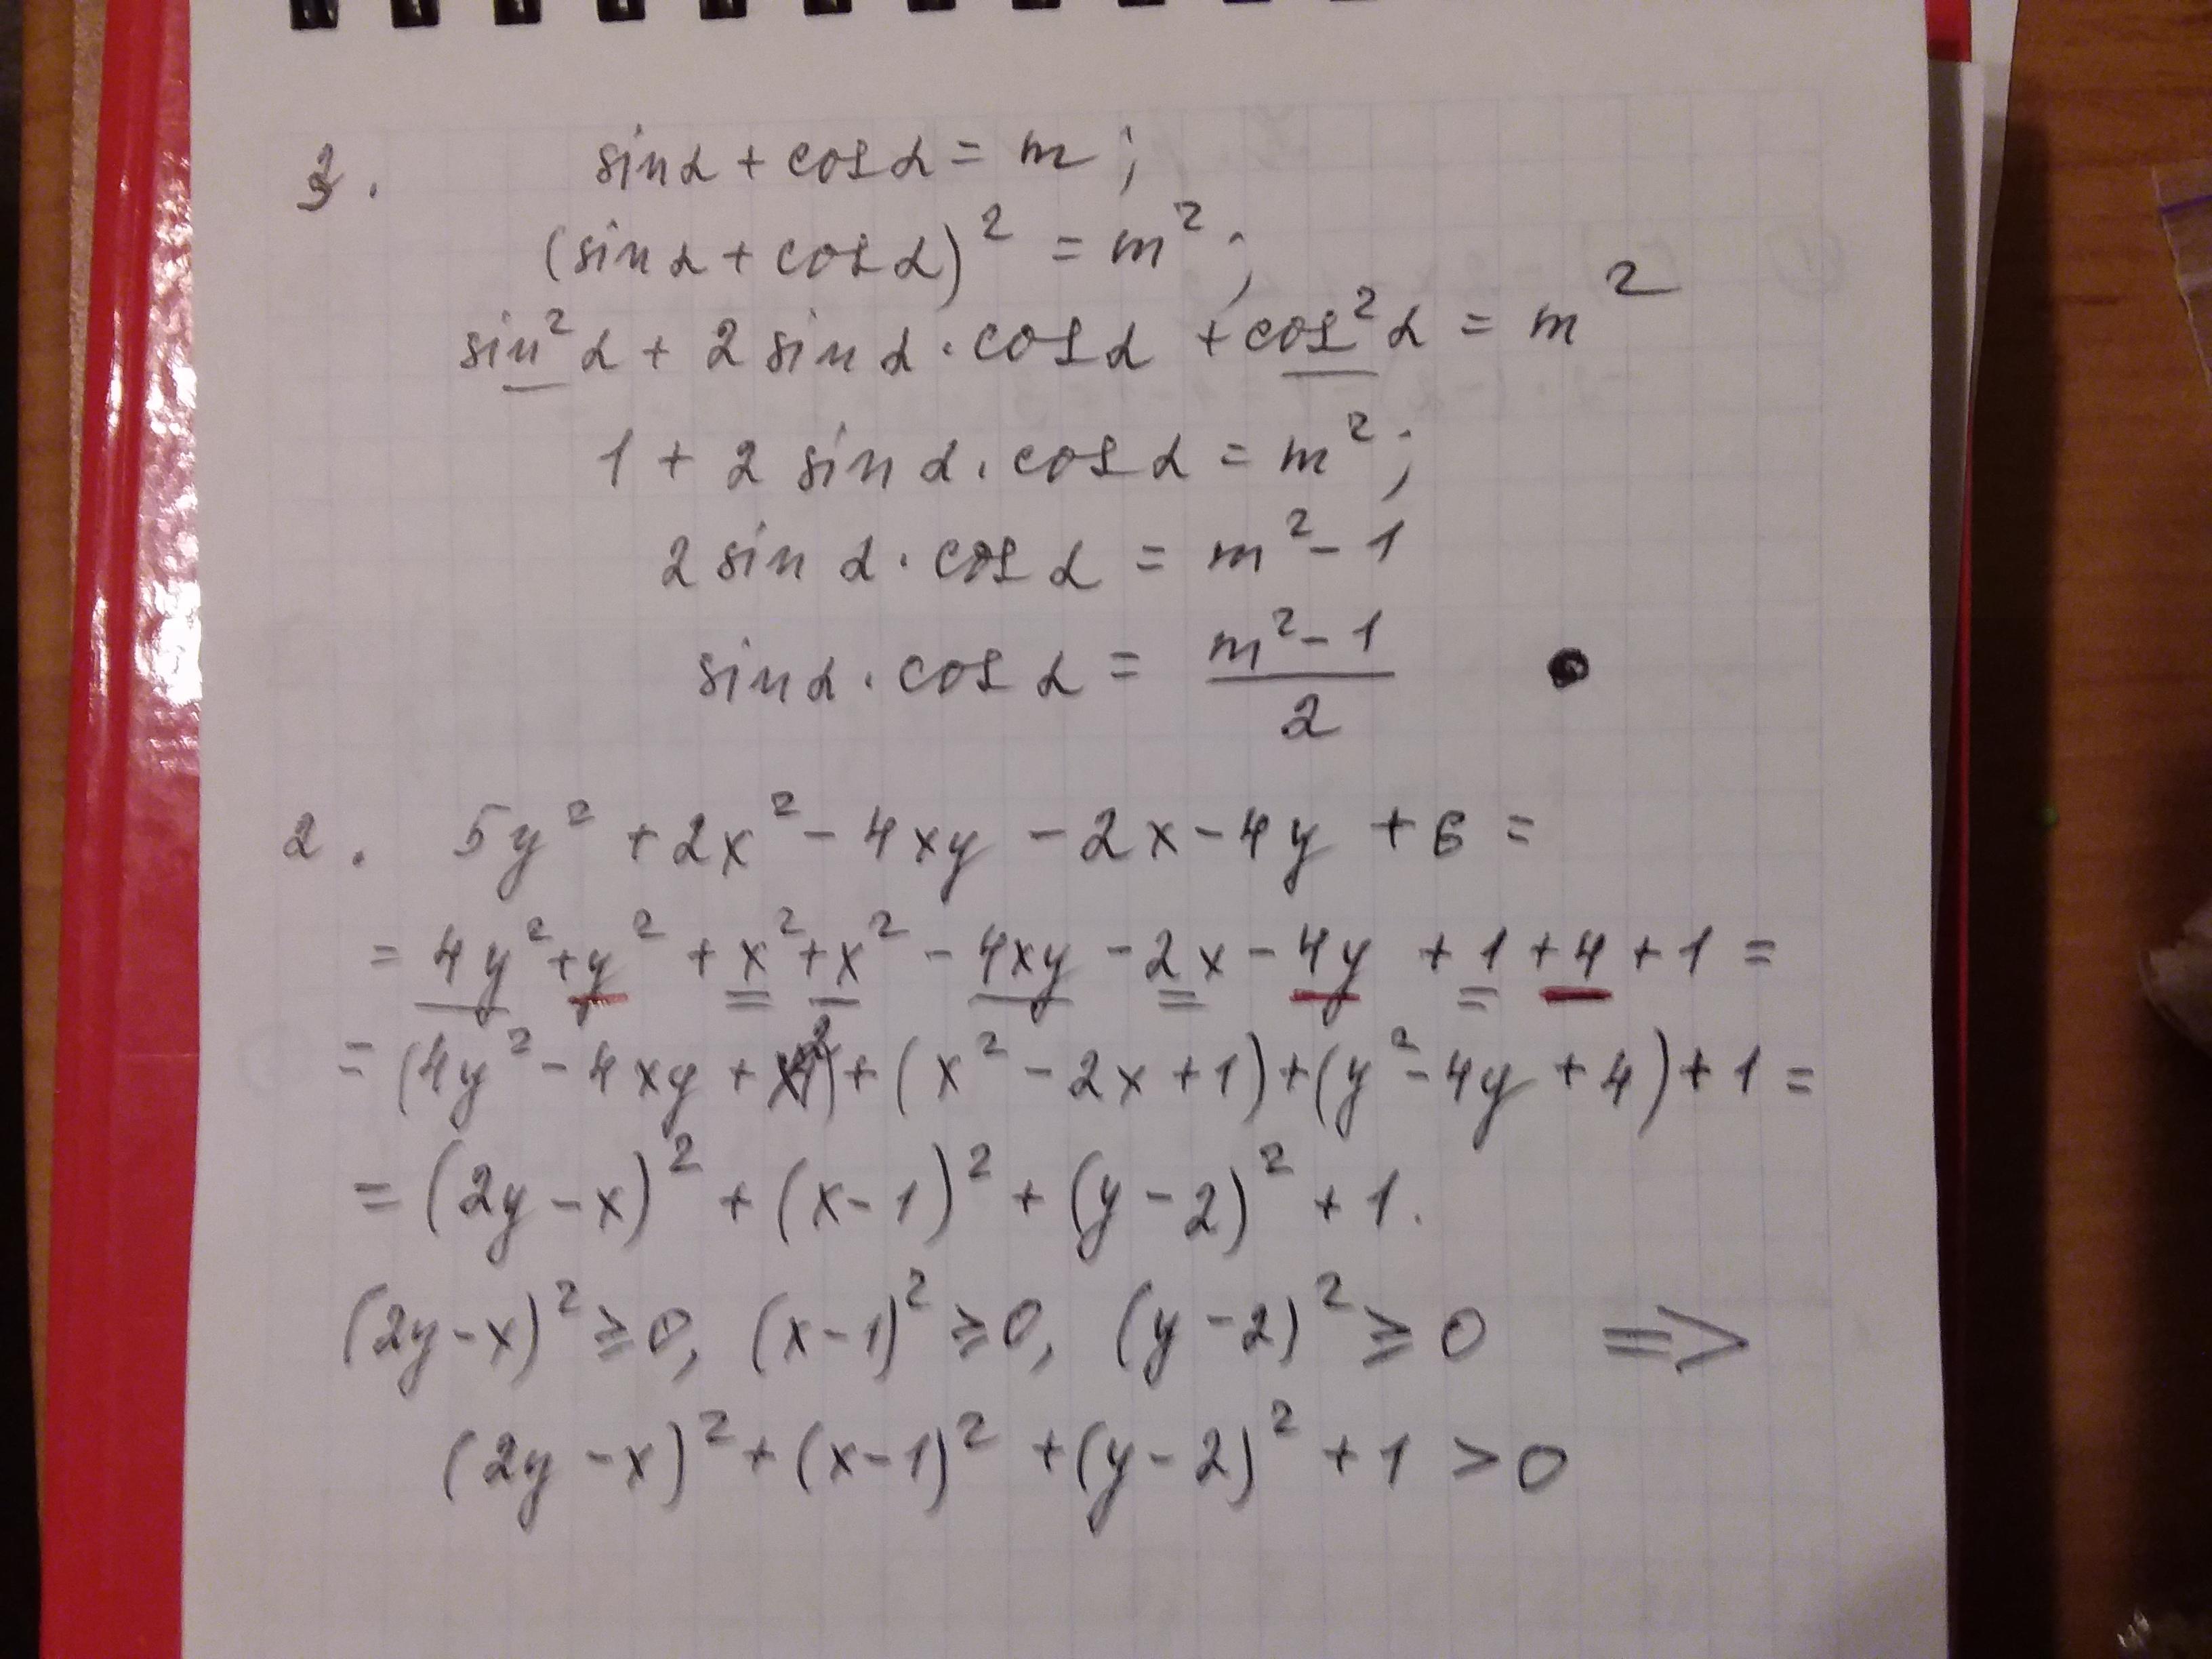 3. sin α + cos α = m ;
(sin α + cos α)² = m² ;
sin² α + 2 sin α · cos α + cos² α = m²
1 + 2 sin α · cos α = m² ;
2 sin α · cos α = m² - 1
sin α · cos α = (m² - 1)/2
2. 5y² + 2x² - 4xy - 2x - 4y + 6 =
= 4y² + y² + x² + x² - 4xy - 2x - 4y + 1 + 4 + 1 =
= (4y² - 4xy + x²) + (x² - 2x + 1) + (y² - 4y + 4) + 1 =
= (2y - x)² + (x - 1)² + (y - 2)² + 1.
(2y - x)² ≥ 0, (x - 1)² ≥ 0, (y - 2)² ≥ 0 =>
(2y - x)² + (x - 1)² + (y - 2)² + 1 > 0